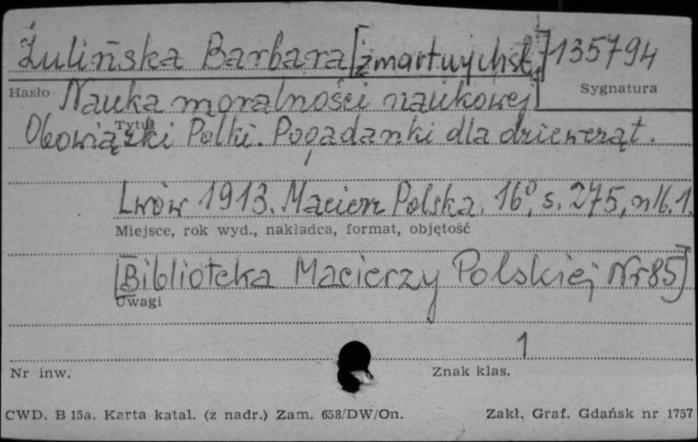 Żulińska Barbara [zmartwychst.] 135794
Hasło Nauka moralności naukowej Sygnatura
Tytuł
Obowiązki Polki. Pogadanki dla dziewcząt.
Lwów 1913. Macierz Polska. 16°, s. 275, nlb. 1.
Miejsce, rok wyd., nakładca, format, objętość
[Biblioteka Macierzy Polskiej Nr 85]
Uwagi
1
Nr inw. Znak klas.
CWD. B 15a. Karta katal. (z nadr.) Zam. 658/DW/On. Zakł. Graf. Gdańsk nr 1757